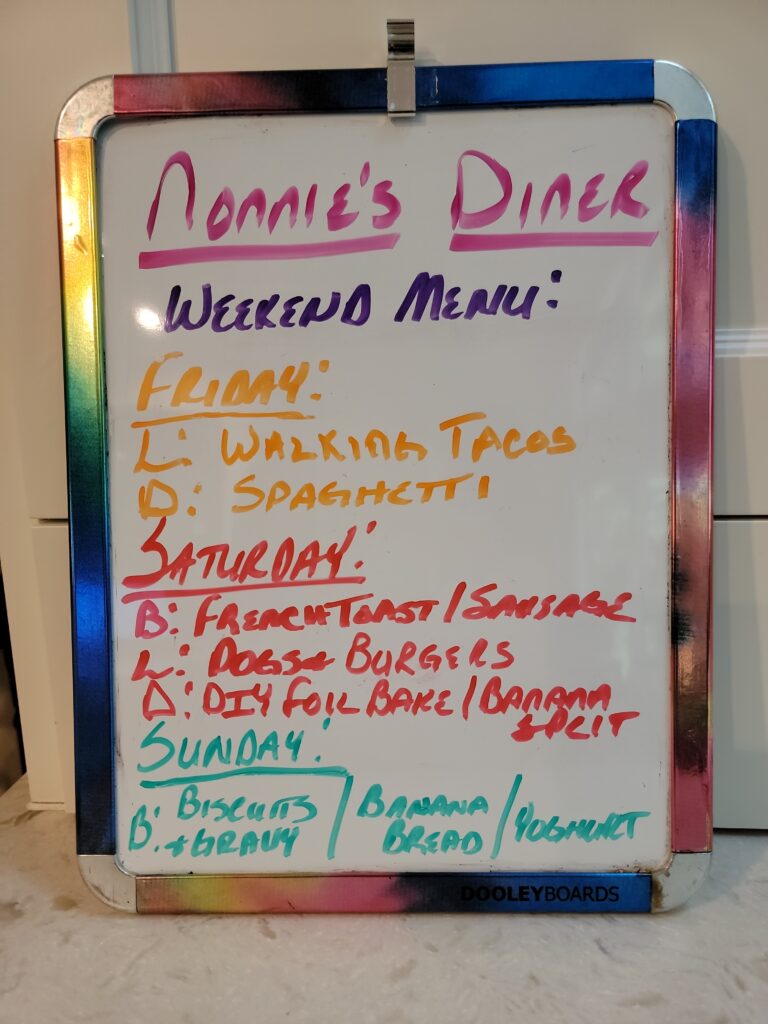 NONNIE'S DINER
WEEKEND MENU:
FRIDAY:
L: WALKING TACOS
D: SPAGHETTI
SATURDAY:
B: FRENCH TOAST / SAUSAGE
L: DOGS + BURGERS
D: DIY FOIL BAKE / BANANA
SPLIT
SUNDAY:
B: BISCUITS / BANANA / YOGHURT
+ GRAVY BREAD
DOOLEYBOARDS